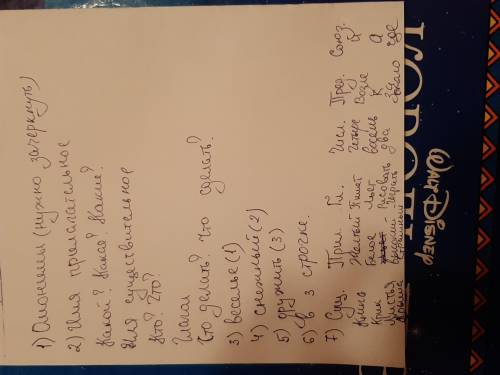 1) Омонимы (нужно зачеркнуть)
2) Имя прилагательное
Какой? Какая? Какие?
Имя существительное
Кто? Что?
Глагол
Что делать? Что сделать?
3) веселье (1)
4) снежный (2)
5) дружить (3)
6) в 3 строчке.
7) Сущ. Прил. Гл. Числ. Пред. Союз.
Книга Желтый Пишет Четыре Возле И
Крик Белое Льет Восемь К А
Листья Рисовать два За где
странный играть около
WALT DISNEY